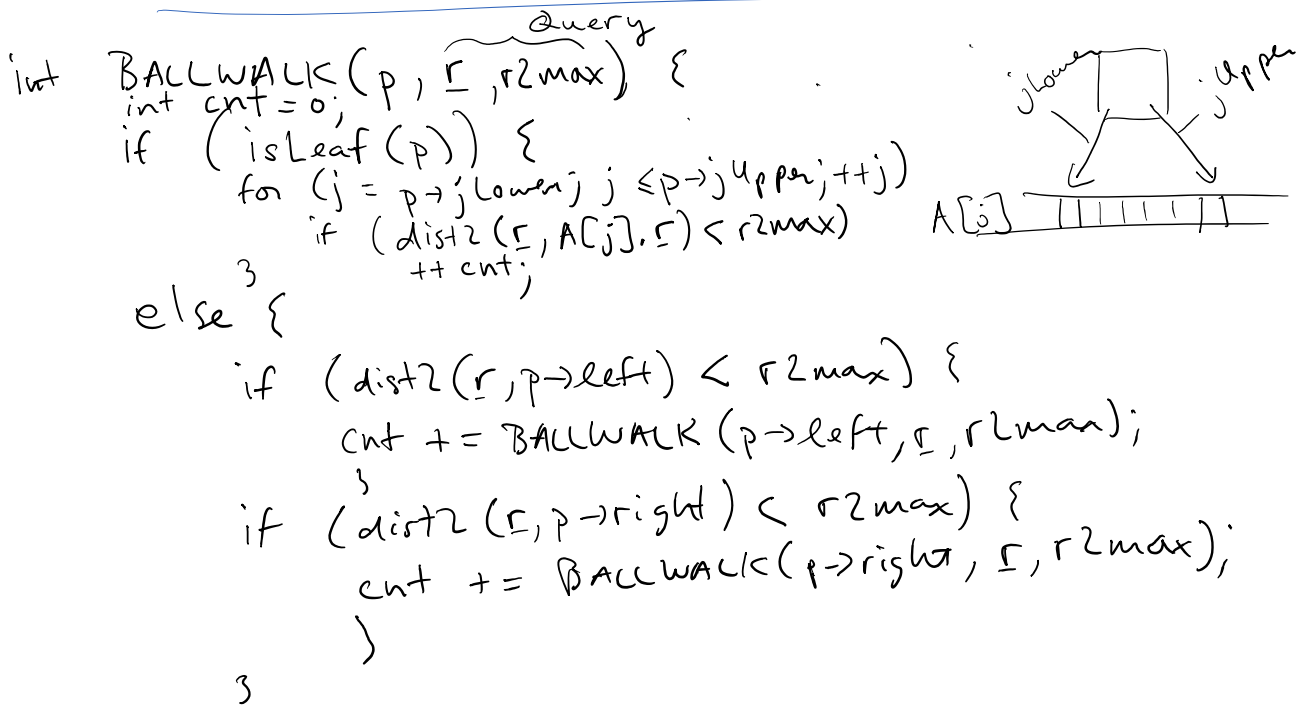 Query
int BALLWALK(p, r, r2max) {
int cnt = 0;
if (isLeaf(p)) {
for (j = p→jLower; j ≤ p→jUpper; ++j)
if (dist2(r, A[j].r) < r2max)
++cnt;
}
else {
if (dist2(r, p→left) < r2max) {
cnt += BALLWALK(p→left, r, r2max);
}
if (dist2(r, p→right) < r2max) {
cnt += BALLWALK(p→right, r, r2max);
}
}
jLower
jUpper
A[j]